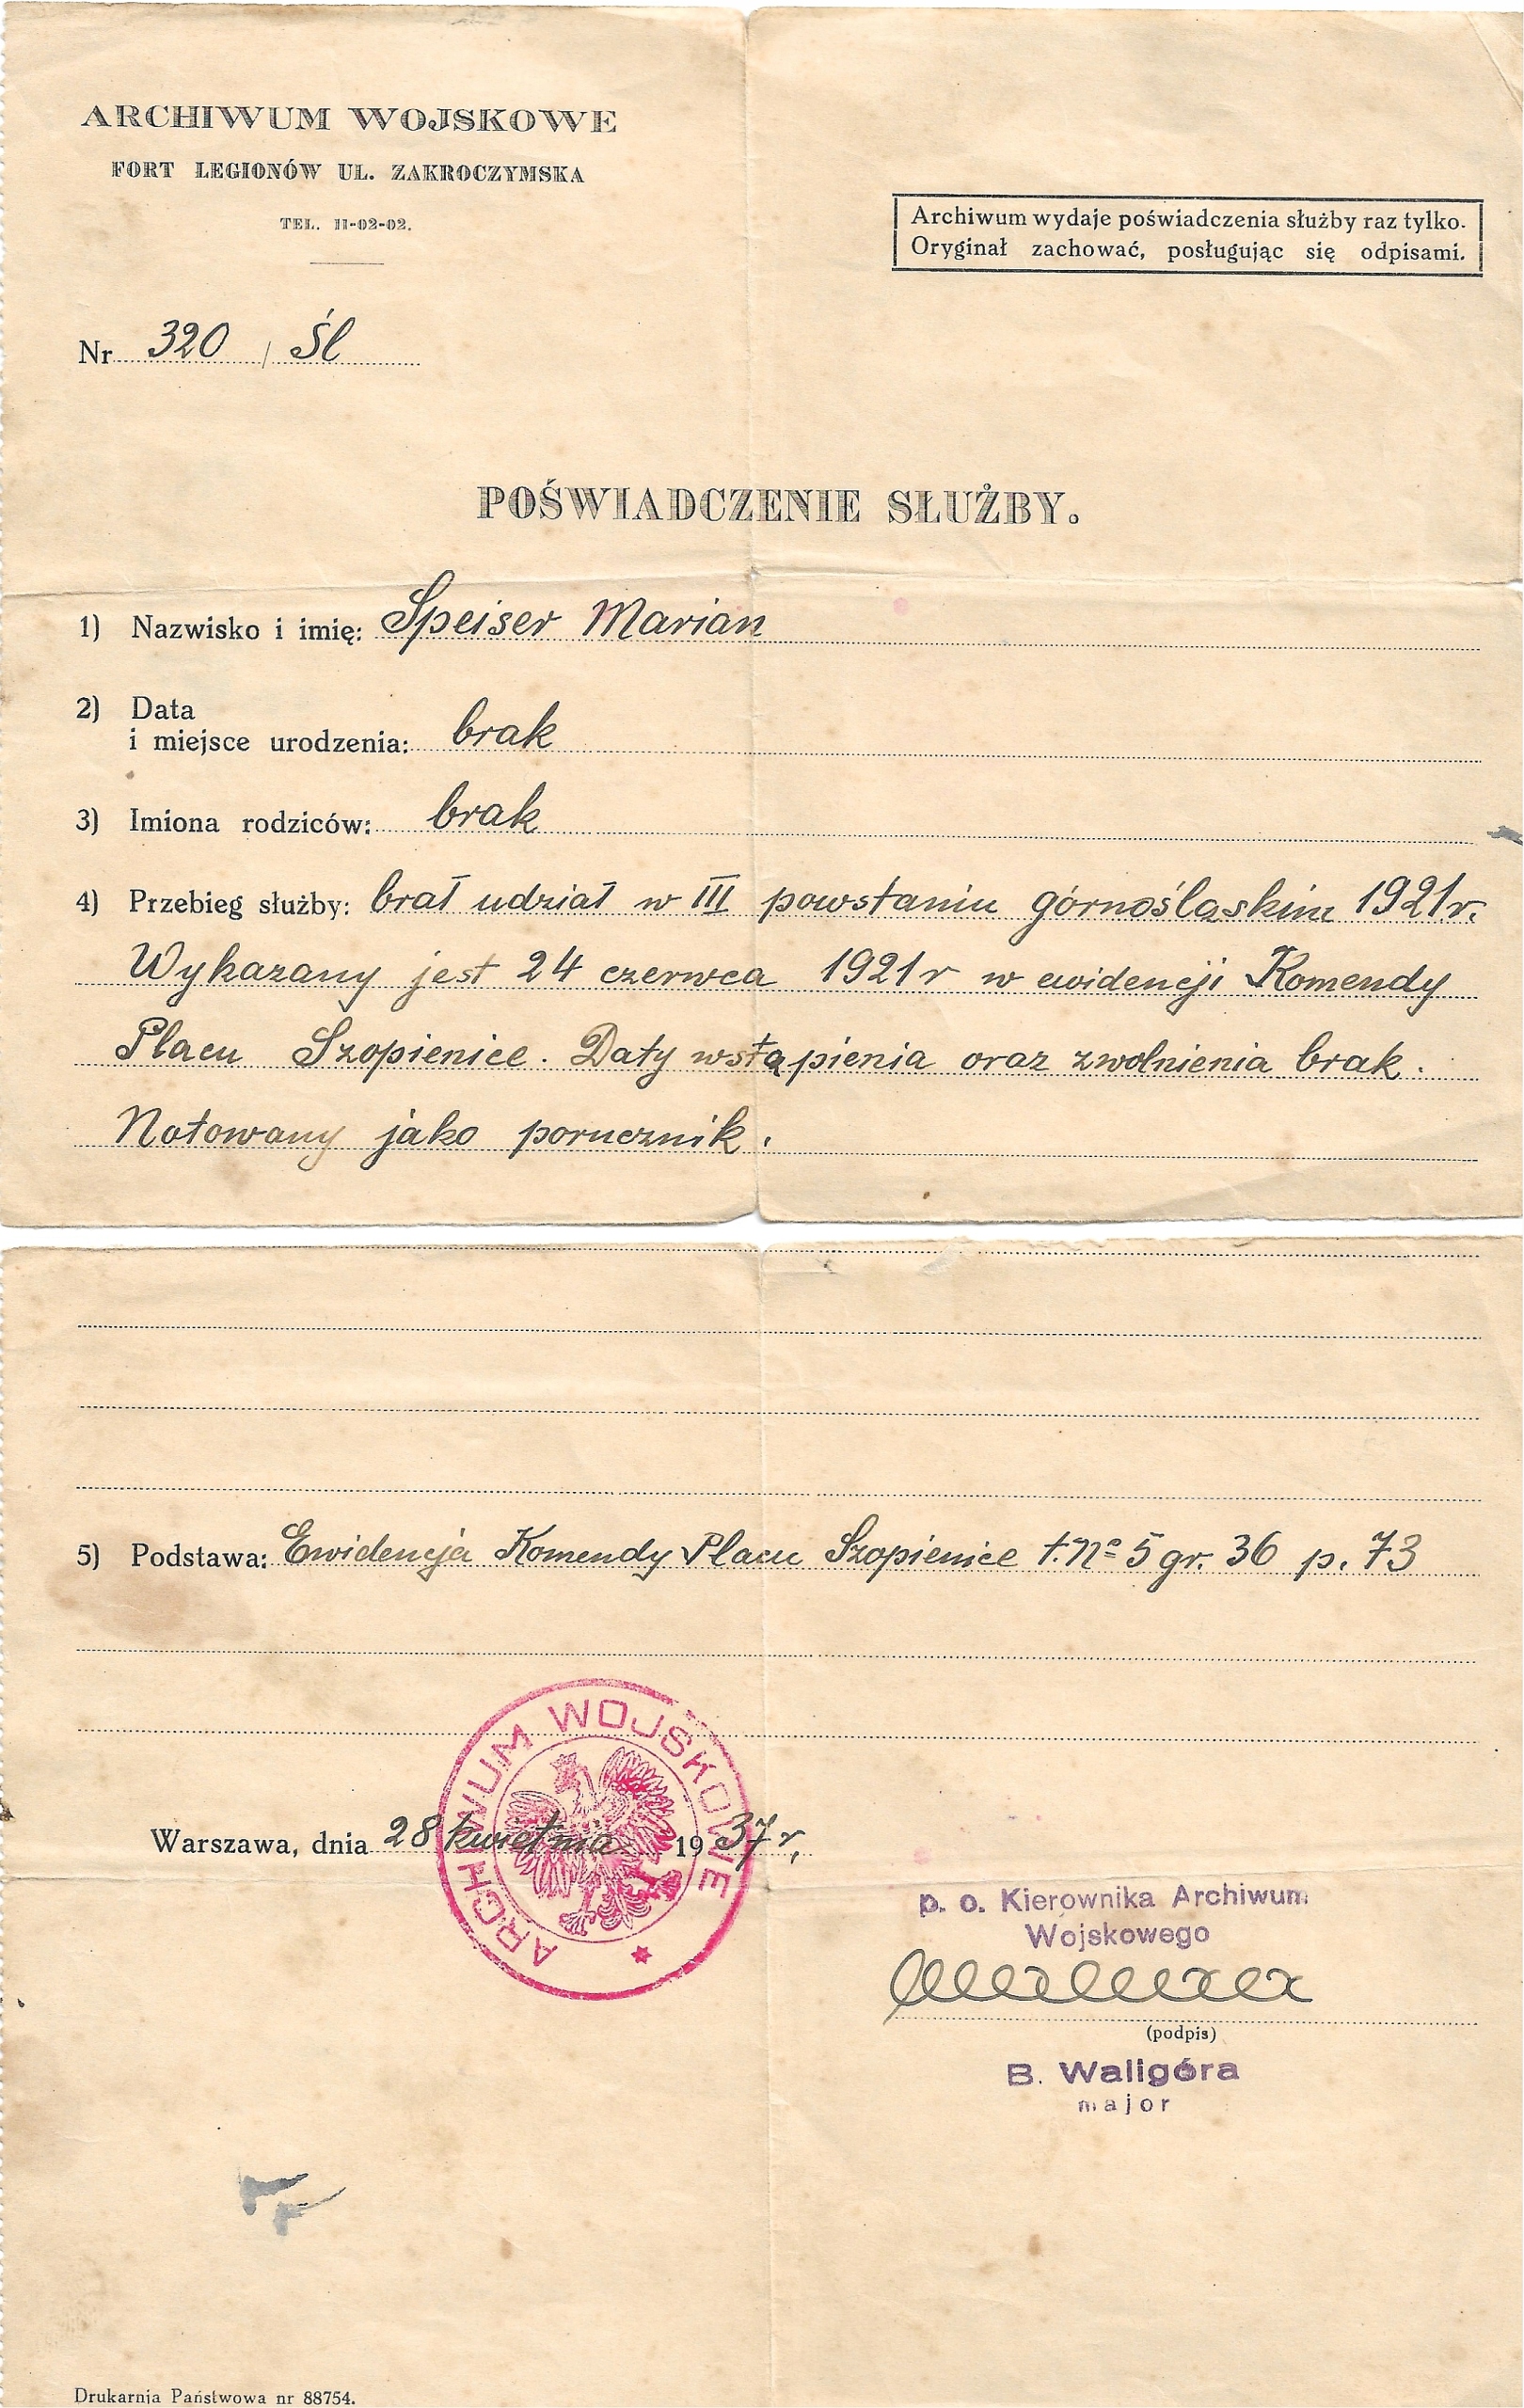 ARCHIWUM WOJSKOWE
FORT LEGIONÓW UL. ZAKROCZYMSKA
TEL. 11-02-02.
Archiwum wydaje poświadczenia służby raz tylko.
Oryginał zachować, posługując się odpisami.
Nr 320 / Śl
POŚWIADCZENIE SŁUŻBY.
1) Nazwisko i imię: Speiser Marian
2) Data
i miejsce urodzenia: brak
3) Imiona rodziców: brak
4) Przebieg służby: brał udział w III powstaniu górnośląskim 1921r.
Wykazany jest 24 czerwca 1921r w ewidencji Komendy
Placu Szopienice. Daty wstąpienia oraz zwolnienia brak.
Notowany jako porucznik.
5) Podstawa: Ewidencja Komendy Placu Szopienice t. No 5 gr. 36 p. 73
ARCHIWUM WOJSKOWE
Warszawa, dnia 28 kwietnia 1937 r.
p. o. Kierownika Archiwum
Wojskowego
(podpis)
B. Waligóra
major
Drukarnia Państwowa nr 88754.